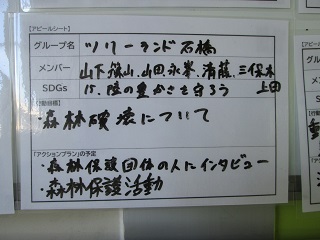 【アピールシート】
グループ名 ツリーランド石橋
メンバー 山下、篠山、山田、永峯、斉藤、三保木
上田
SDGs 15.陸の豊かさを守ろう
・森林破壊について
「アクションプラン」の予定
・森林保護団体の人にインタビュー
・森林保護活動